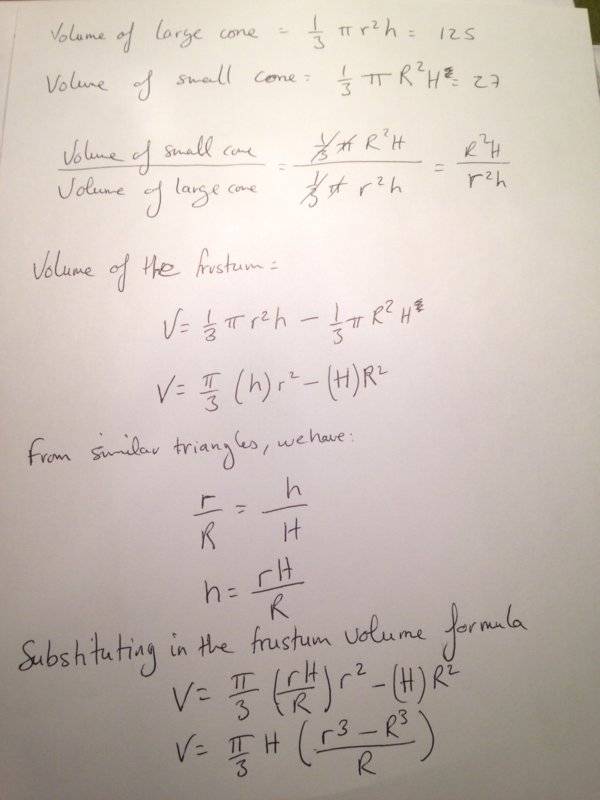 Volume of large cone = 1/3 π r²h = 125
Volume of small cone = 1/3 π R²H = 27
Volume of small cone / Volume of large cone = 1/3 π R²H / 1/3 π r²h = R²H / r²h
Volume of the frustum =
V = 1/3 π r²h − 1/3 π R²H
V = π/3 (h)r² − (H)R²
From similar triangles, we have:
r/R = h/H
h = rH/R
Substituting in the frustum volume formula
V = π/3 (rH/R) r² − (H)R²
V = π/3 H (r³ − R³ / R)